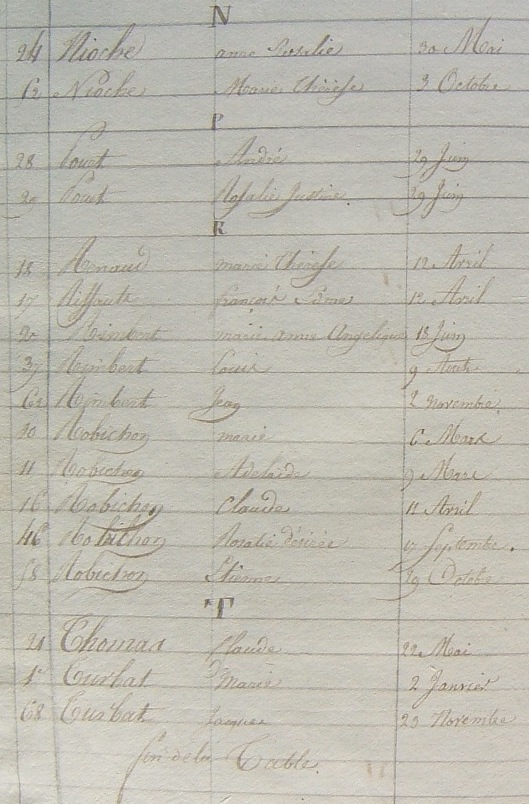 N
24 Nioche anne Rosalie 30 Mai
62 Nioche Marie Thérèse 3 Octobre
P
28 Pouet André 29 Juin
29 Pouet Rosalie Justine 29 Juin
R
18 Renaud marie Thérèse 12 Avril
17 françois 12 Avril
Rimbert marie anne Angelique 18 Juin
37 Rimbert Louis 9 Août
62 Rimbert Jean 2 novembre
10 Robichon marie 6 Mars
11 Robichon Adelaide 9 Mars
16 Robichon Claude 11 Avril
46 Robichon Rosalie désirée 17 Septembre
58 Robichon Etienne 29 Octobre
T
21 Thomas Claude 22 Mai
1 Turbat Marie 2 Janvier
68 Turbat Jacques 23 Novembre
fin de la Table.